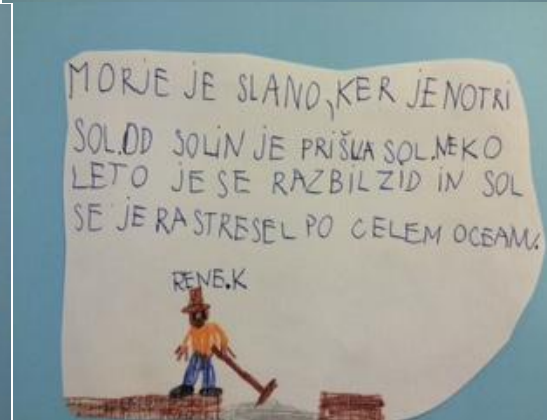 MORJE JE SLANO, KER JE NOTRI
SOL. OD SOLIN JE PRIŠLA SOL. NEKO
LETO JE SE RAZBIL ZID IN SOL
SE JE RASTRESEL PO CELEM OCEANU.
RENE.K